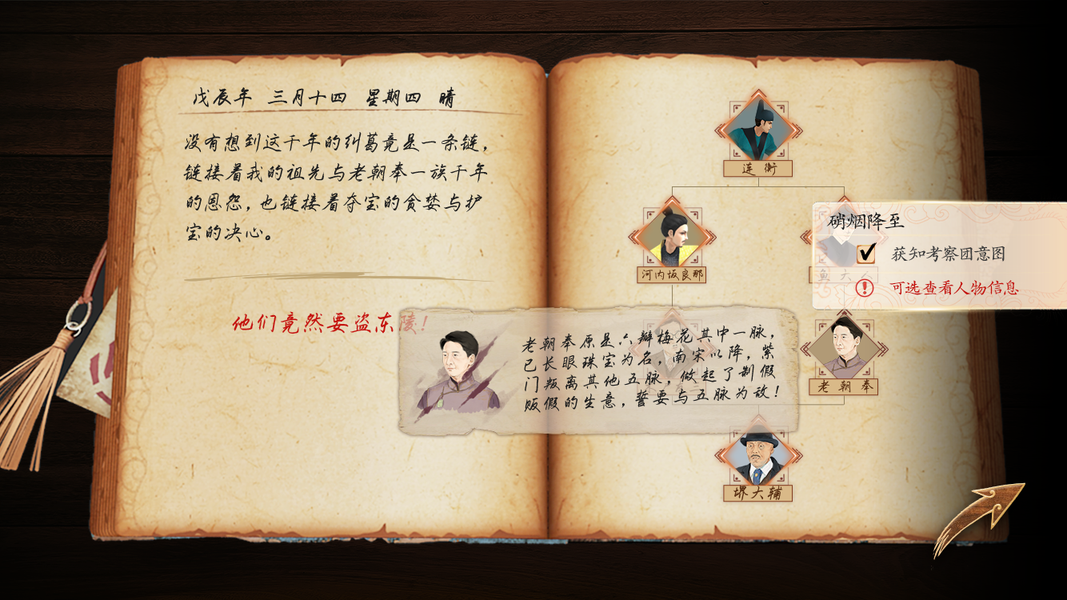 戊辰年 三月十四 星期四 晴
没有想到这千年的纠葛竟是一条链，
链接着我的祖先与老朝奉一族千年
的恩怨，也链接着夺宝的贪婪与护
宝的决心。
他们竟然要盗东陵！
老朝奉原是六瓣梅花其中一脉，
已长眼珠宝为名，南宋以降，紫
门叛离其他五脉，做起了制假
贩假的生意，誓要与五脉为敌！
莲衡
河内坂良那
老朝奉
堺大辅
硝烟降至
获知考察团意图
可选查看人物信息